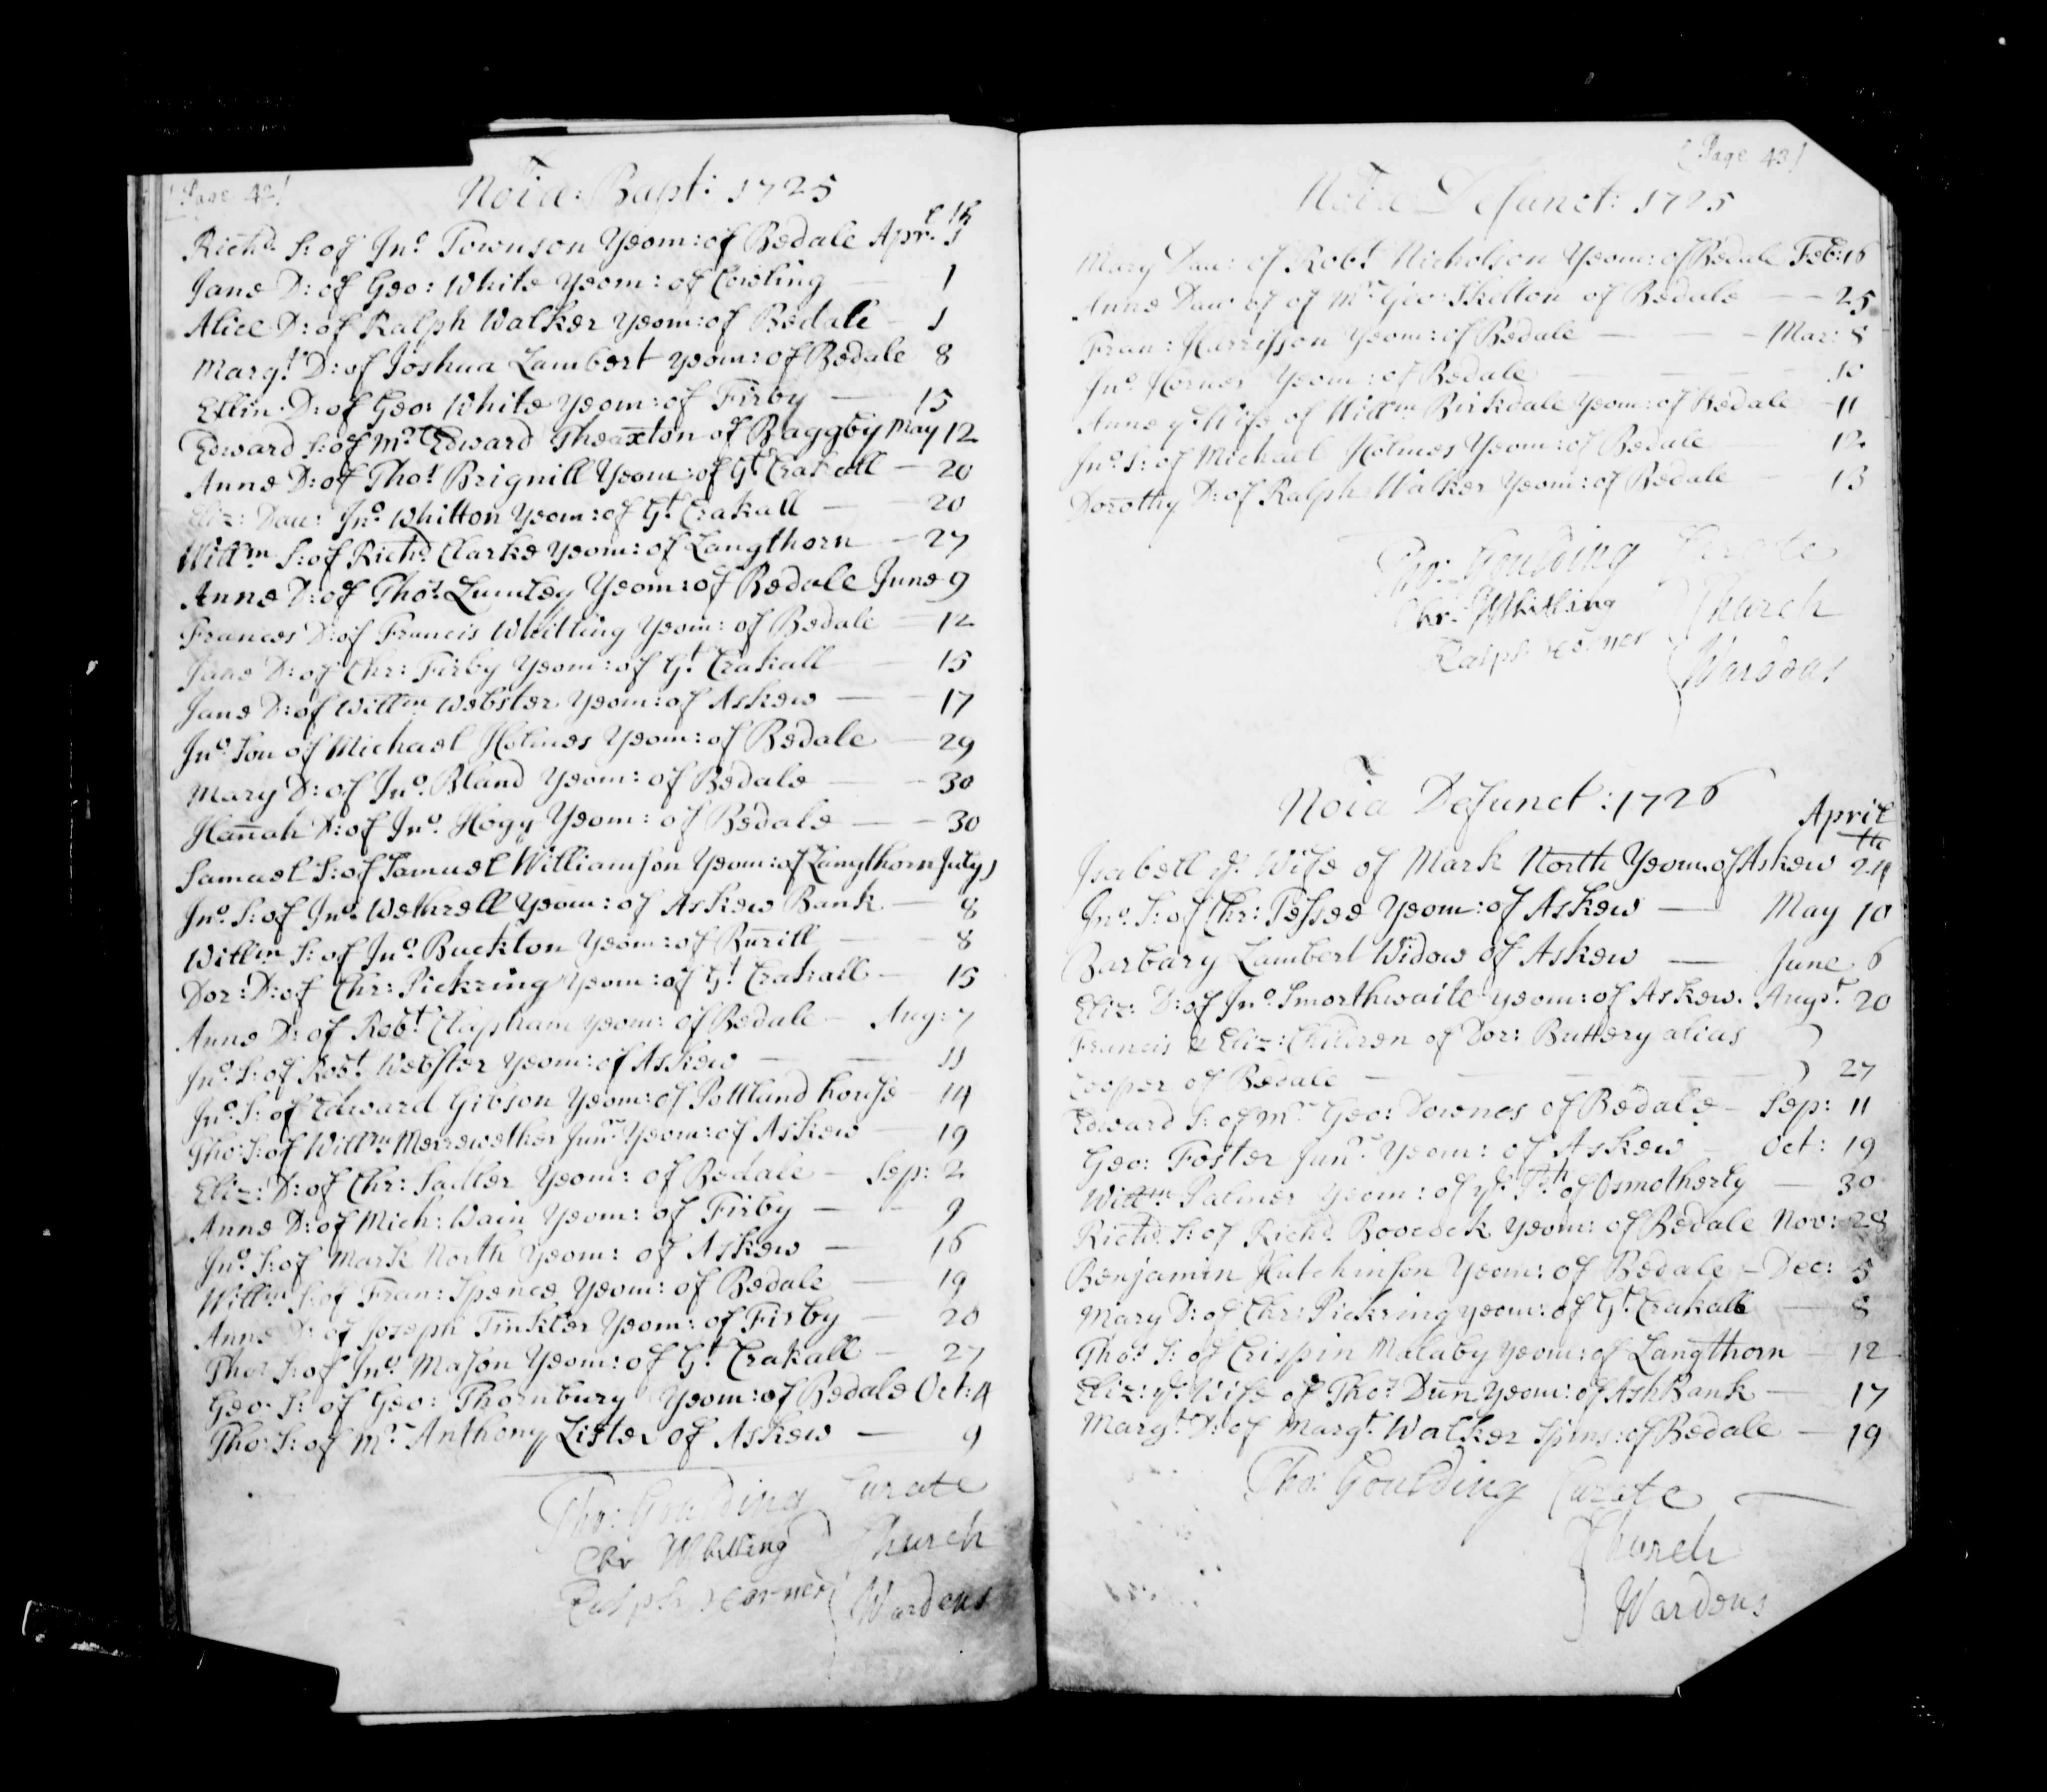 (Page 42)
Noĩa: Bapt: 1725
Richd. S: of Jno Townson Yeom: of Bedale Aprl. 1th
Jane D: of Geo: White Yeom: of Cowling — 1
Alice D: of Ralph Walker Yeom: of Bedale - 1
Margt. D: of Joshua Lambert Yeom: of Bedale 8
Ellin D: of Geo: White Yeom: of Firby — 15
Edward S: of Mr Edward Theaxton of Baggby May 12
Anne D: of Thos. Brignill Yeom: of Gt Crakall — 20
Eliz: Dau: Jno. Whitton Yeom: of Gt. Crakall — 20
Willm S: of Richd. Clarke Yeom: of Langthorn — 27
Anne D: of Thos. Lumley Yeom: of Bedale June 9
Frances D: of Francis Whitting Yeom: of Bedale — 12
Jane D: of Chr: Firby Yeom: of Gt. Crakall — 15
Jane D: of Willm Webster Yeom: of Askew — 17
Jno. Son of Michael Holmes Yeom: of Bedale — 29
Mary D: of Jno. Bland Yeom: of Bedale — 30
Hañah D: of Jno. Hogg Yeom: of Bedale — 30
Samuel S: of Samuel Williamson Yeom: of Langthorn July 1
Jno. S: of Jno. Wethrell Yeom: of Askew Bank — 8
Willm S: of Jno. Buckton Yeom: of Burill — 8
Dor: D: of Chr: Pickring Yeom: of Gt. Crakall — 15
Anne D: of Robt. Clapham Yeom: of Bedale — Aug: 7
Jno. S: of Robt. Webster Yeom: of Askew — 11
Jno. S: of Edward Gibson Yeom: of Pottland house — 14
Tho: S: of Willm Merrewether Junr. Yeom: of Askew — 19
Eliz: D: of Chr: Sadler Yeom: of Bedale — Sep: 2
Anne D: of Mich: Wain Yeom: of Firby — 9
Jno. S: of Mark North Yeom: of Askew — 16
Willm S: of Fran: Spence Yeom: of Bedale — 19
Anne D: of Joseph Tinkler Yeom: of Firby — 20
Thos. S: of Jno. Mason Yeom: of Gt. Crakall — 27
Geo. S: of Geo: Thornbury Yeom: of Bedale Oct: 4
Tho: S: of Mr. Anthony Lister of Askew — 9
Tho: Goulding Curate
Chr Whitling Church
Ralph Horner Wardens
(Page 43)
Noĩa Defunct: 1725
Mary Dau: of Robt Nicholson Yeom: of Bedale Feb: 16
Anne Dau of of Mr Geo: Skelton of Bedale — 25
Fran: Harrisson Yeom: of Bedale — Mar: 8
Jno. Horner Yeom: of Bedale — 10
Anne ye Wife of Willm Birkdale Yeom: of Bedale — 11
Jno. S: of Michael Holmes Yeom: of Bedale — 12
Dorothy D: of Ralph Walker Yeom: of Bedale — 13
Tho: Goulding Curate
Chr. Whitling Church
Ralph Horner Wardens
Noĩa Defunct: 1726
April
Isabell ye Wife of Mark North Yeom: of Askew 24th
Jno. S: of Chr: Tessee Yeom: of Askew — May 10
Barbary Lambert Widow of Askew — June 6
Eliz: D: of Jno. Smorthwaite Yeom: of Askew. Augst. 20
Francis & Eliz: Children of Dor: Buttery alias
Cooper of Bedale — 27
Edward S: of Mr Geo: Downes of Bedale — Sep: 11
Geo: Foster Junr. Yeom: of Askew — Oct: 19
Willm Palmer Yeom: of ye Psh of Osmotherly — 30
Richd. S: of Richd. Boocock Yeom: of Bedale Nov: 28
Benjamin Hutchinson Yeom: of Bedale — Dec: 5
Mary D: of Chr: Pickring Yeom: of Gt. Crakall — 8
Thos. S: of Crispin Malaby Yeom: of Langthorn — 12
Eliz: ye Wife of Thos. Dũn Yeom: of Ash Bank — 17
Margt. D: of Margt. Walker Spins: of Bedale — 19
Tho: Goulding Curate
Church
Wardens